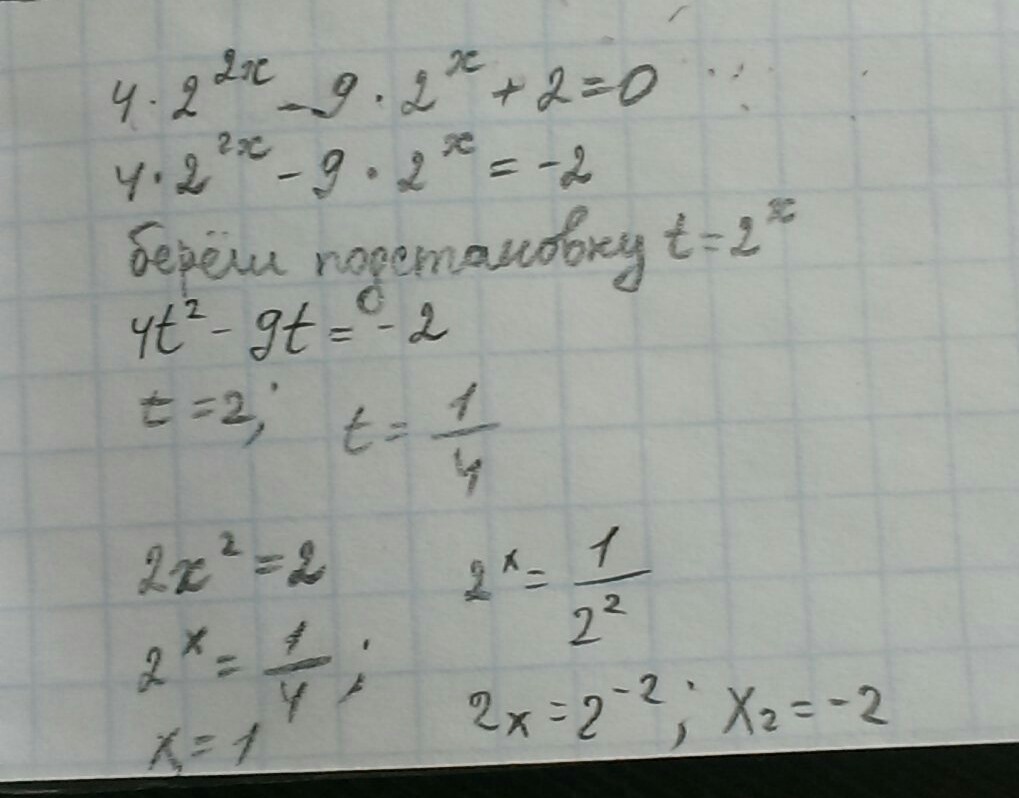 4 · 2^{2x} - 9 · 2^x + 2 = 0
4 · 2^{2x} - 9 · 2^x = -2
берём подстановку t = 2^x
4t² - 9t = -2
t = 2; t = 1/4
2x² = 2 2^x = 1/2²
2^x = 1/4;
2x = 2^{-2}; x₂ = -2
x = 1